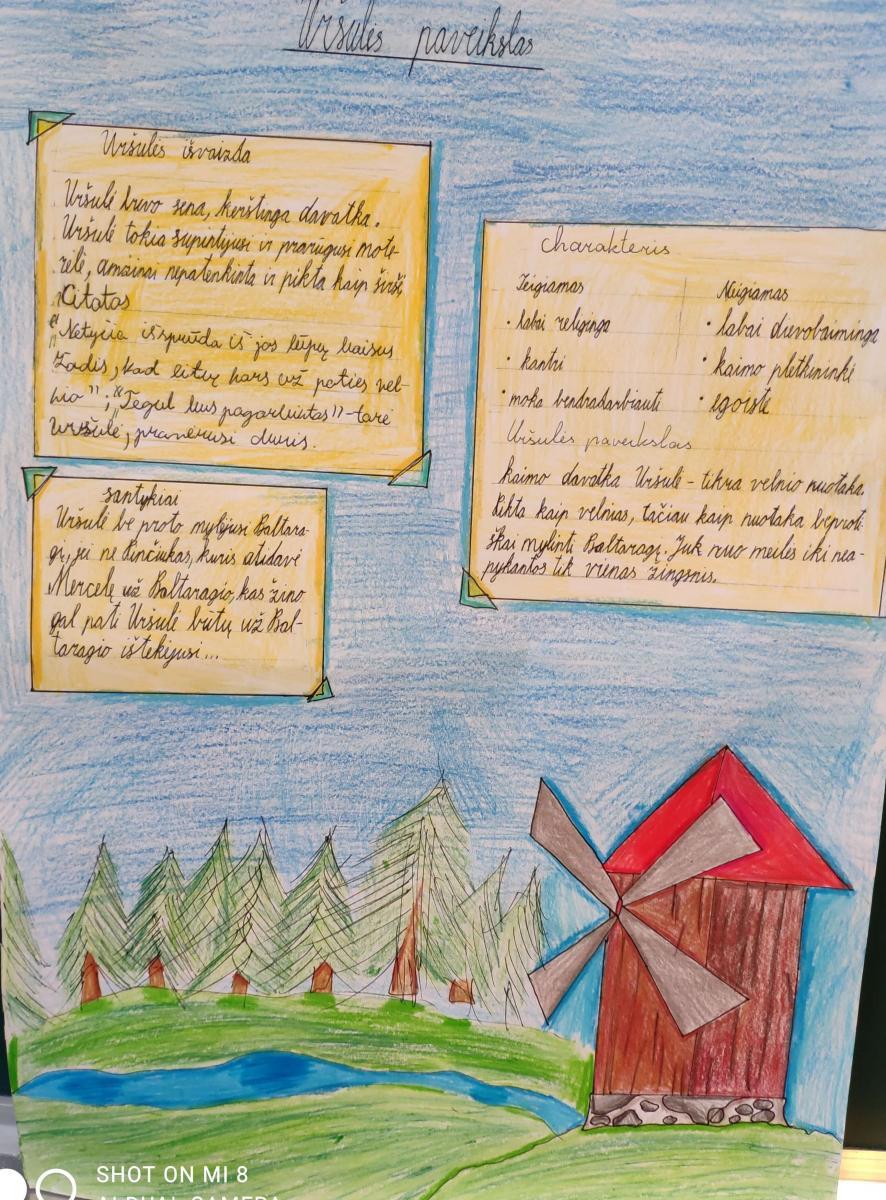 Uršulės paveikslas
Uršulės išvaizda
Uršulė buvo sena, kerštinga davatka.
Uršulė tokia supuntijusi ir prarūgusi mote-
rėlė, amžinai nepatenkinta ir pikta kaip širšė
Citatos
"Netyčia išsprūda iš jos lūpų baisus
žadis, kad eitų nors už paties vel-
nio"; "Tegul bus pagarbintas" - tarė
Uršulė, pravėrusi duris.
santykiai
Uršulė be proto mylėjusi Baltara-
gį, jei ne Pinčiukas, kuris atidavė
Mercelę už Baltaragio, kas žino
gal pati Uršulė būtų už Bal-
taragio ištekėjusi...
Charakteris
Teigiamas Neigiamas
• labai religinga • labai dievobaiminga
• kantri • kaimo pletkininkė
• moka bendradarbiauti • egoistė
Uršulės paveikslas
kaimo davatka Uršulė - tikra velnio nuotaka.
Pikta kaip velnias, tačiau kaip nuotaka beproti-
škai mylinti Baltaragį. Juk nuo meilės iki nea-
pykantos tik vienas žingsnis.
SHOT ON MI 8
AI DUAL CAMERA